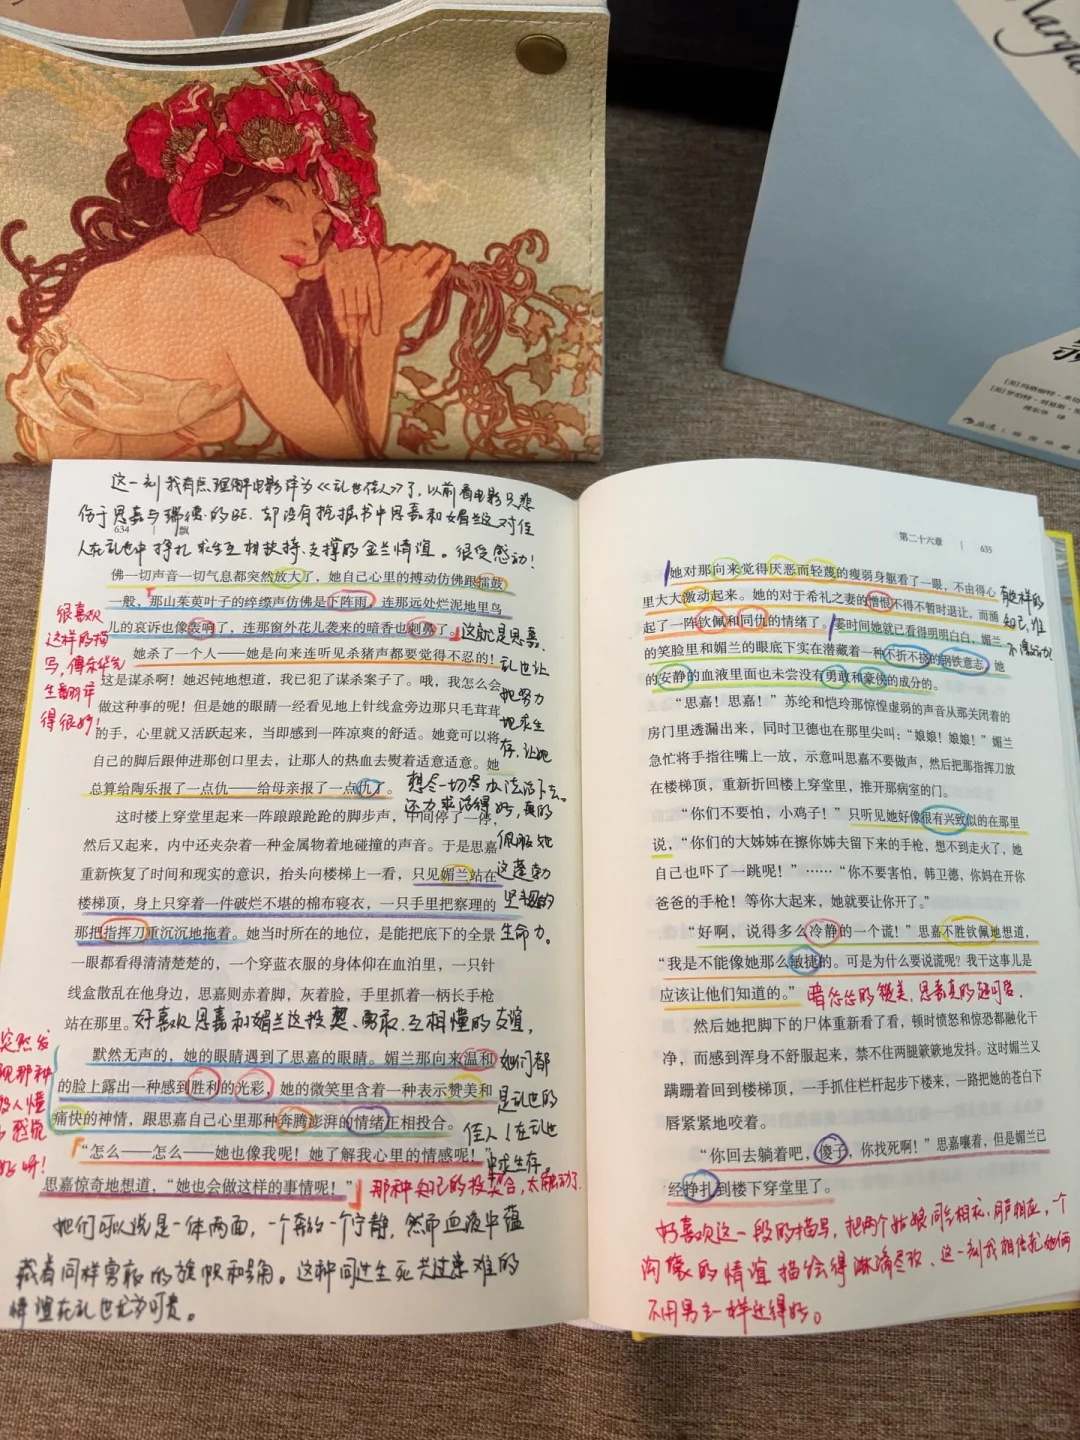 Marga
[美]玛格丽特·
傅东华 译
这一刻我有点理解电影译为《乱世佳人》了，以前看电影只悲
伤于思嘉与瑞德的BE，却没有挖掘书中思嘉和媚兰这对佳
634 | 飘
人在乱世中挣扎求生互相扶持、支撑的金兰情谊。很受感动！
佛一切声音一切气息都突然放大了，她自己心里的搏动仿佛跟擂鼓
一般，那山茱萸叶子的綷縩声仿佛是下阵雨，连那远处烂泥地里鸟
儿的哀诉也像轰响了，连那窗外花儿袭来的暗香也刺鼻了。
她杀了一个人——她是向来连听见杀猪声都要觉得不忍的！
这是谋杀啊！她迟钝地想道，我已犯了谋杀案子了。哦，我怎么会
做这种事的呢！但是她的眼睛一经看见地上针线盒旁边那只毛茸茸
的手，心里就又活跃起来，当即感到一阵凉爽的舒适。她竟可以将
自己的脚后跟伸进那创口里去，让那人的热血去熨着适意适意。她
总算给陶乐报了一点仇——给母亲报了一点仇了。
这时楼上穿堂里起来一阵踉踉跄跄的脚步声，中间停了一停，
然后又起来，内中还夹杂着一种金属物着地碰撞的声音。于是思嘉
重新恢复了时间和现实的意识，抬头向楼梯上一看，只见媚兰站在
楼梯顶，身上只穿着一件破烂不堪的棉布寝衣，一只手里把察理的
那把指挥刀重沉沉地拖着。她当时所在的地位，是能把底下的全景
一眼都看得清清楚楚的，一个穿蓝衣服的身体仰在血泊里，一只针
线盒散乱在他身边，思嘉则赤着脚，灰着脸，手里抓着一柄长手枪
站在那里。
好喜欢思嘉和媚兰这投契、勇敢、互相懂的友谊，
默然无声的，她的眼睛遇到了思嘉的眼睛。媚兰那向来温和
的脸上露出一种感到胜利的光彩，她的微笑里含着一种表示赞美和
痛快的神情，跟思嘉自己心里那种奔腾澎湃的情绪正相投合。
“怎么——怎么——她也像我呢！她了解我心里的情感呢！”
思嘉惊奇地想道，“她也会做这样的事情呢！”
那种知己的投契合，太触动了
很喜欢
这样的描
写，傅东华先
生翻译
得很妙！
这就是思嘉，
乱世让
她努力
地求生
存，让她
想尽一切尽力活下去。
还力求活得好，真的
佩服她
这蓬勃
坚韧的
生命力。
突然发
现那种
被人懂
的感觉
好呀！
她们都
是乱世的
佳人！在乱世
中求生存。
她们可以说是一体两面，一个奔放一个宁静，然而血液中蕴
藏着同样勇敢的旗帜和号角。这种同过生死共过患难的
情谊在乱世尤为可贵。
第二十六章 | 635
她对那向来觉得厌恶而轻蔑的瘦弱身躯看了一眼，不由得心
里大大激动起来。她的对于希礼之妻的憎恨不得不暂时退让，而涌
起了一阵钦佩和同仇的情绪了。霎时间她就已看得明明白白，媚兰
的笑脸里和媚兰的眼底下实在潜藏着一种不折不挠的钢铁意志，她
的安静的血液里面也未尝没有勇敢和豪侠的成分的。
“思嘉！思嘉！”苏纶和恺玲那惊惶虚弱的声音从那关闭着的
房门里透漏出来，同时卫德也在那里尖叫：“娘娘！娘娘！”媚兰
急忙将手指往嘴上一放，示意叫思嘉不要做声，然后把那指挥刀放
在楼梯顶，重新折回楼上穿堂里，推开那病室的门。
“你们不要怕，小鸡子！”只听见她好像很有兴致似的在那里
说，“你们的大姊姊在擦你姊夫留下来的手枪，想不到走火了，她
自己也吓了一跳呢！”……“你不要害怕，韩卫德，你妈在开你
爸爸的手枪！等你大起来，她就要让你开了。”
“好啊，说得多么冷静的一个谎！”思嘉不胜钦佩地想道，
“我是不能像她那么敏捷的。可是为什么要说谎呢？我干这事儿是
应该让他们知道的。”
暗戳戳的赞美，思嘉真的超可爱.
然后她把脚下的尸体重新看了看，顿时愤怒和惊恐都融化干
净，而感到浑身不舒服起来，禁不住两腿簌簌地发抖。这时媚兰又
蹒跚着回到楼梯顶，一手抓住栏杆起步下楼来，一路把她的苍白下
唇紧紧地咬着。
“你回去躺着吧，傻子，你找死啊！”思嘉嚷着，但是媚兰已
经挣扎到楼下穿堂里了。
有这样的
知己，谁
不得感动！
好喜欢这一段的描写，把两个姑娘同气相求，同声相应，一个
沟壕的情谊描绘得淋漓尽致，这一刻我相信她们俩
不用男主一样过得好。